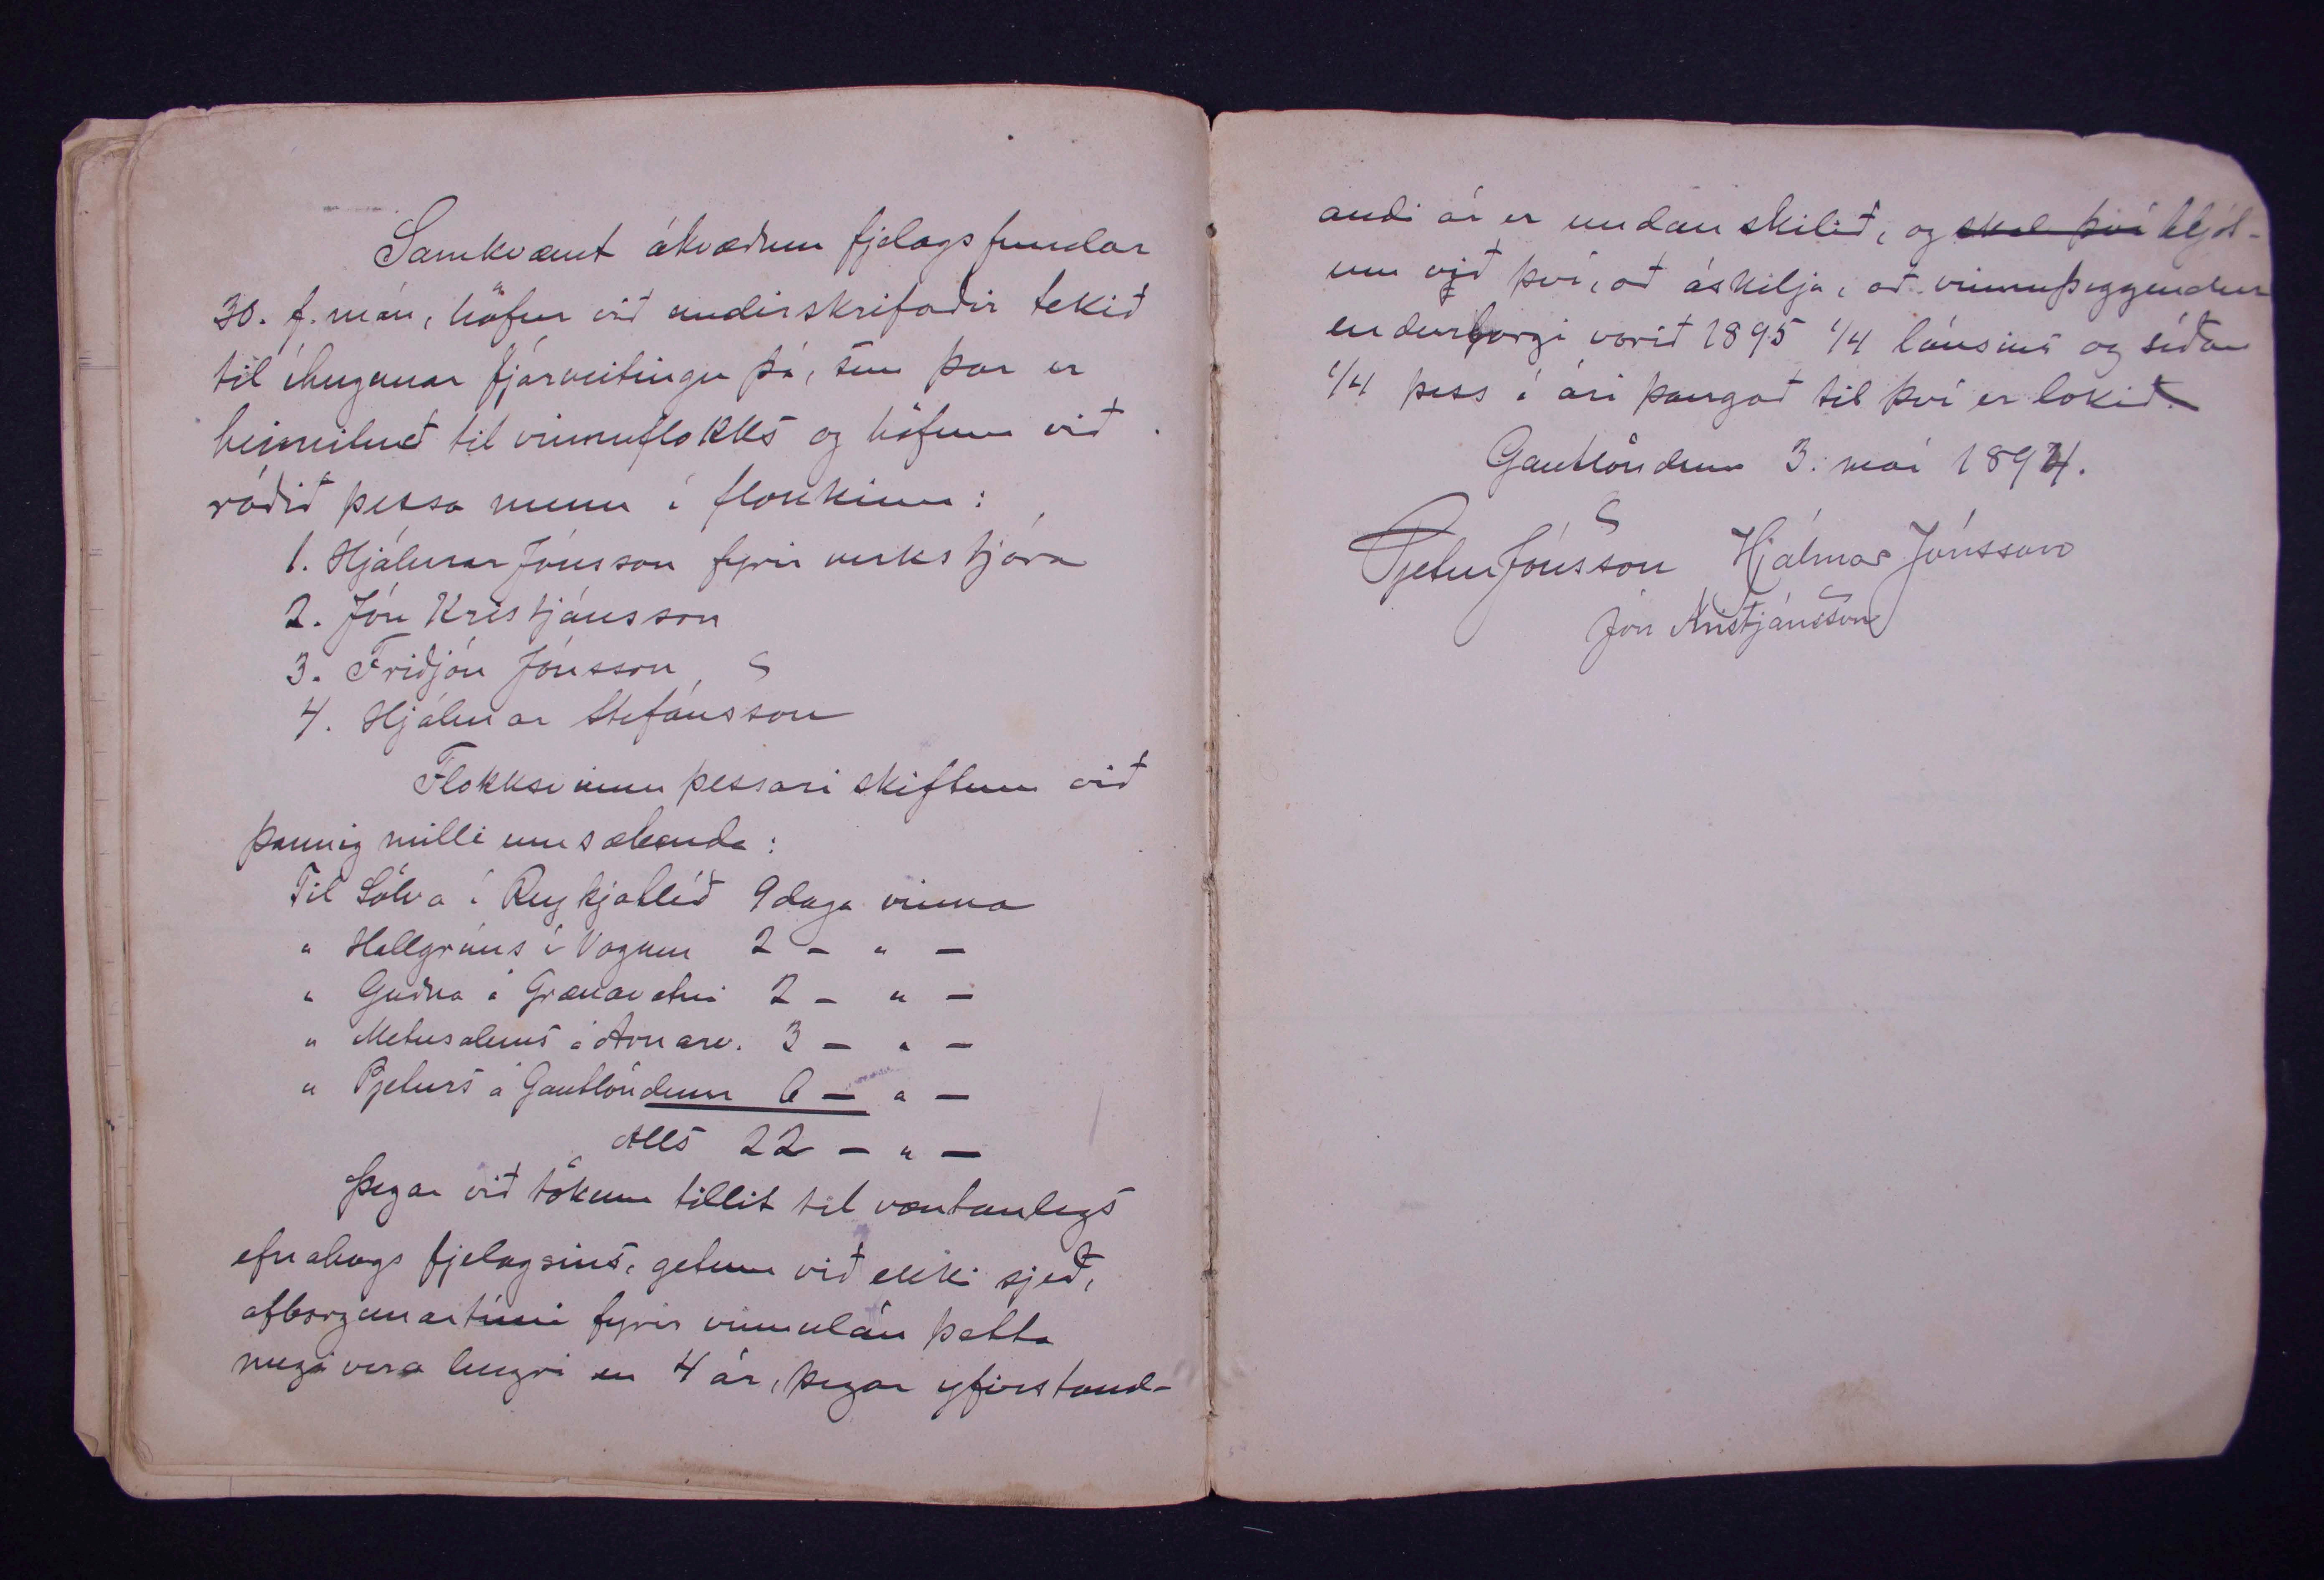 Samkvæmt ákvæðum fjelagsfundar
30. f. mán, höfum við undirskrifaðir tekið
til íhugunar fjárveitingu þá, sem þar er
heimiluð til vinnuflokks og höfum við
ráðið þessa menn í flokkinn:
1. Hjálmar Jónsson fyrir verkstjóra
2. Jón Kristjánsson
3. Friðjón Jónsson
4. Hjálmar Stefánsson
Flokksvinnu þessari skiftum við
þannig milli umsækenda:
Til Sölva í Reykjahlíð 9 daga vinna
" Hallgríms í Vogum 2 - " -
" Guðna á Grænavatni 2 - " -
" Metusalems á Arnarv. 3 - " -
" Pjeturs á Gautlöndum 6 - " -
Alls 22 - " -
Þegar við tökum tillit til væntanlegs
efnahags fjelagsins, getum við ekki sjeð,
afborgunartími fyrir vinnulán þetta
megi vera lengri en 4 ár, þegar yfirstand-
andi ár er undanskilið, og skal því hljót-
um við því, að áskilja, að vinnuþiggendur
endurborgi vorið 1895 1/4 lánsins og síðan
1/4 þess á ári þangað til því er lokið.
Gautlöndum 3. maí 1894.
Pjetur Jónsson Hjálmar Jónsson
Jón Kristjánsson